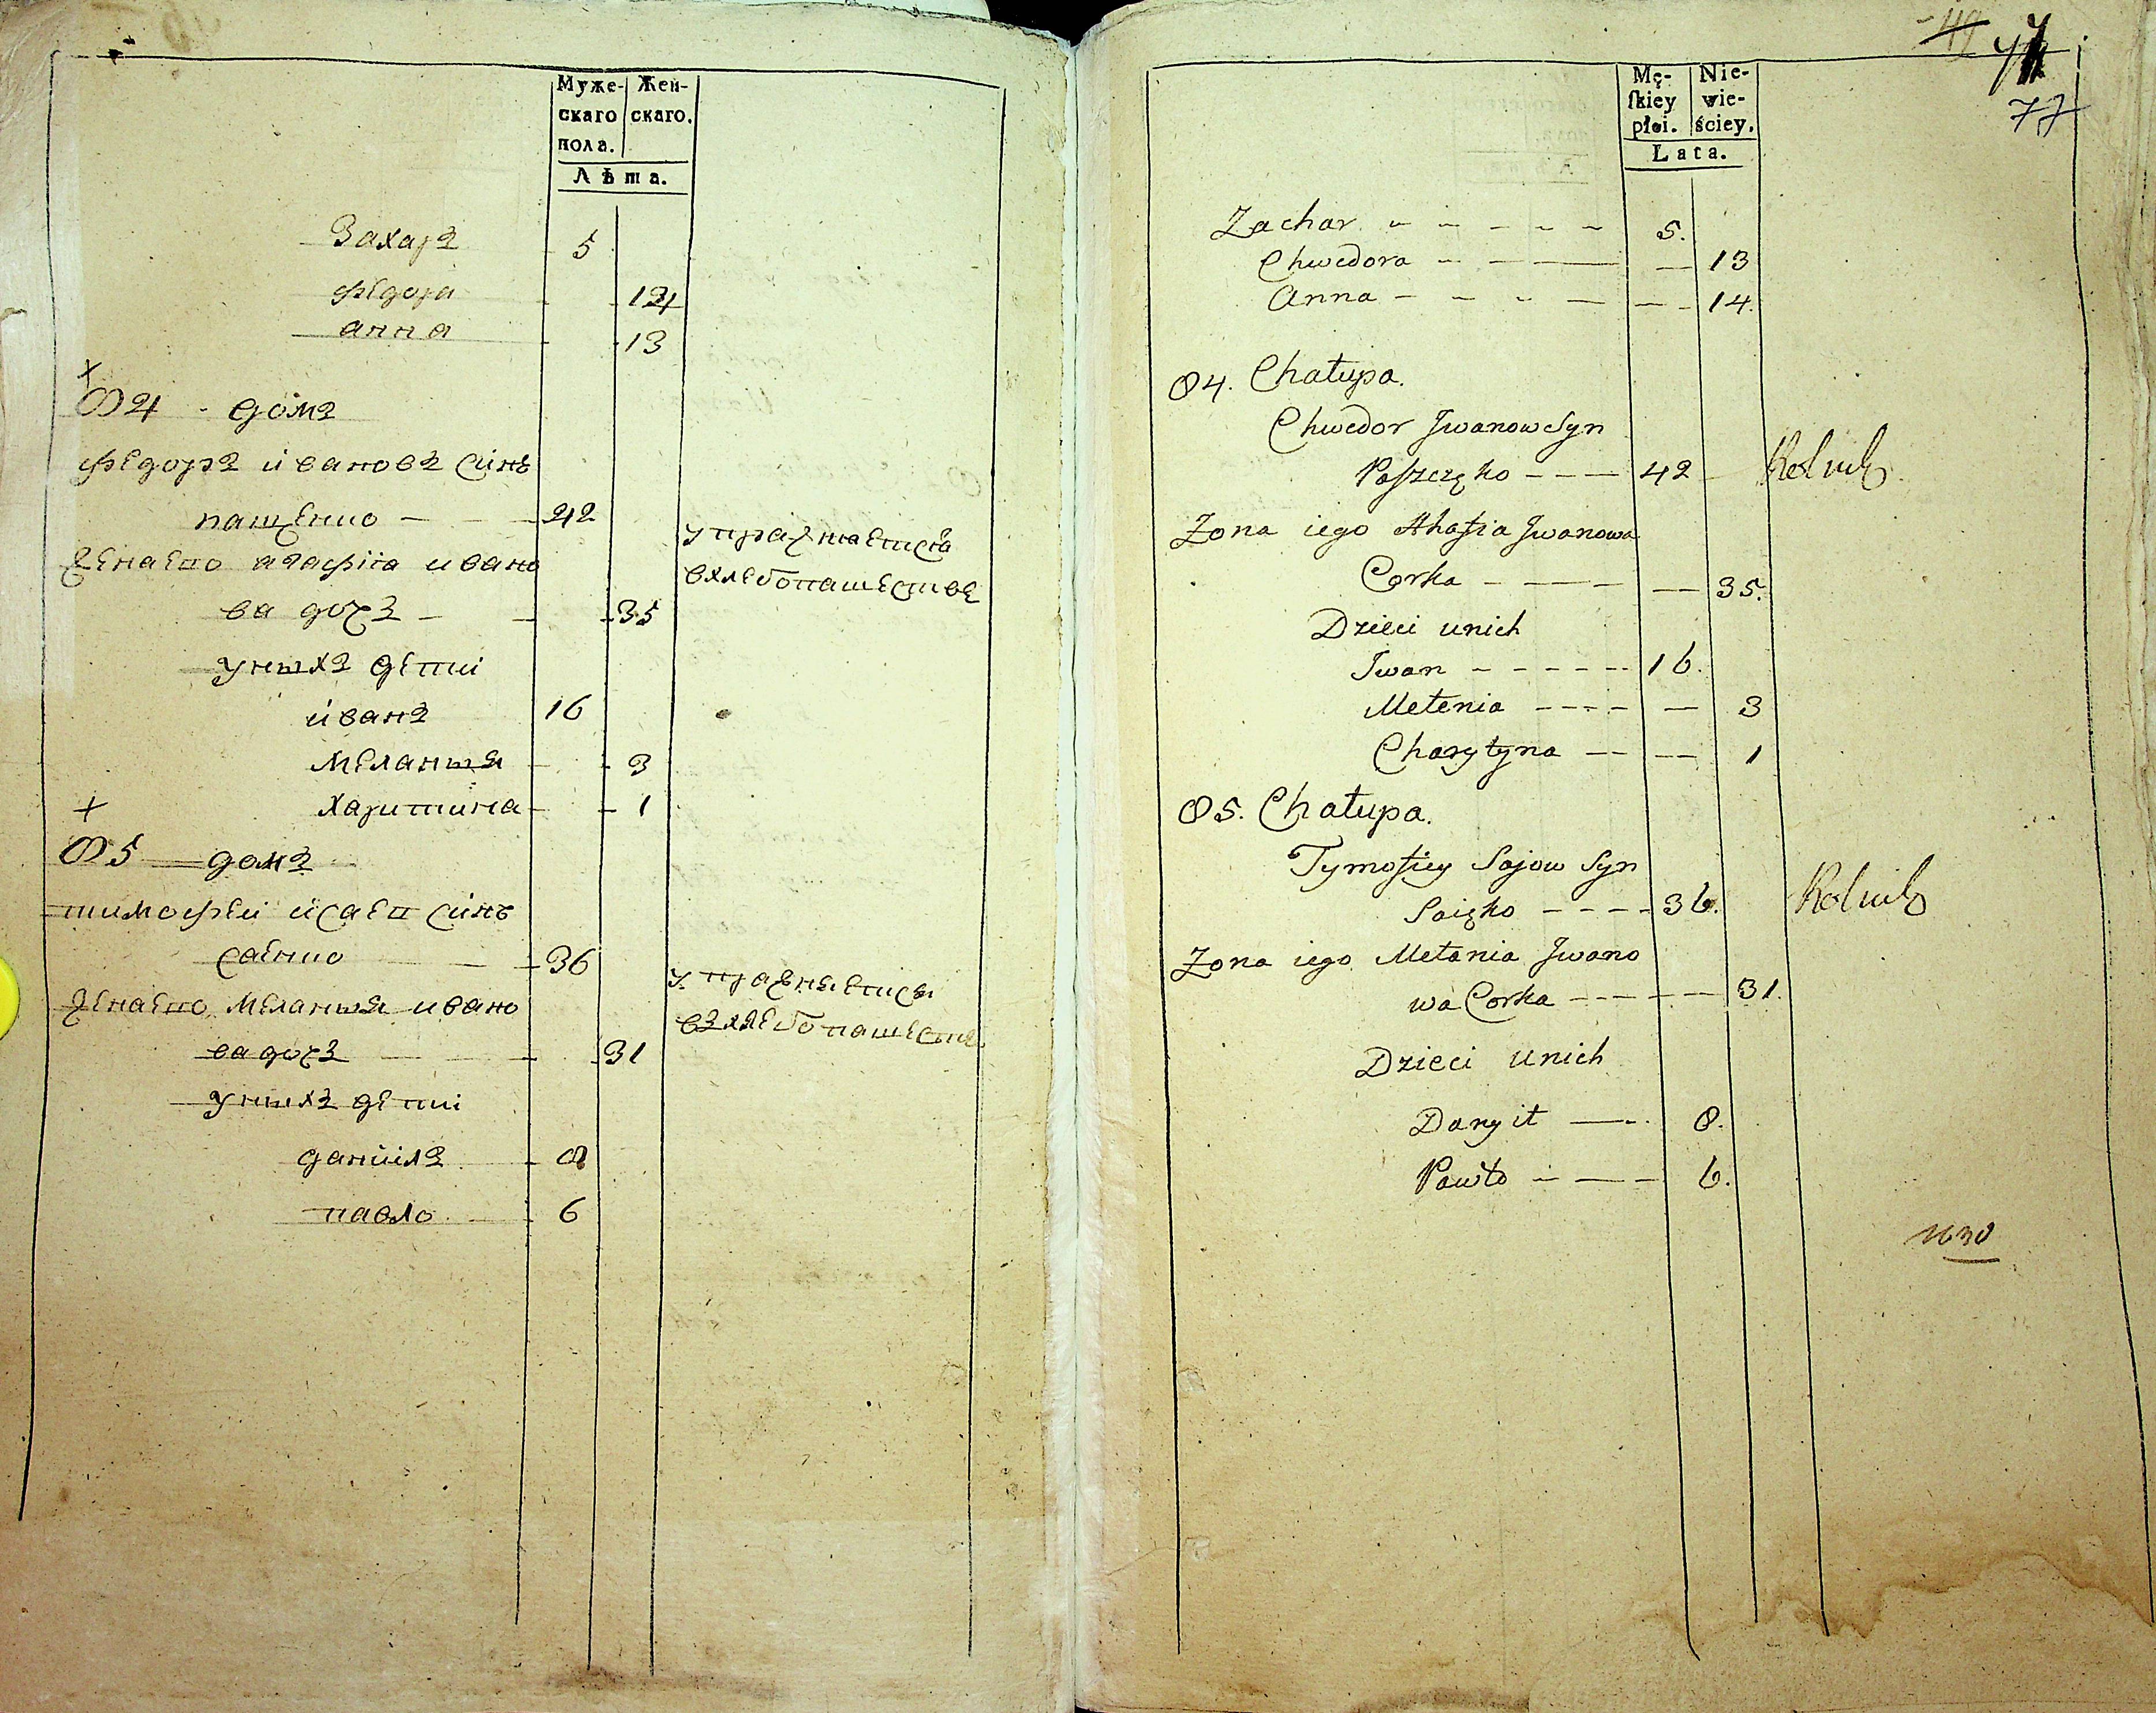 Муже- Жен-
скаго скаго.
пола.
Лѣта.
Захаръ 5
Федора 14
анна 13
+
84 - домъ
Федоръ ивановъ синъ
пащенко - - - 42
упражняется
вхлебопашестве
женаего агафия ивано
ва дочъ - - 35
унихъ дети
иванъ 16
Меланья - - 3
харитина - - 1
+
85 домъ
тимофей исаев синъ
саенко - - 36
упражняется
въхлебопашестве
женаего Меланья ивано
ва дочъ - - 31
унихъ дети
данiилъ - 8
павло - 6
77
Mę- Nie-
ſkiey wie-
płci. ściey.
Lata.
Zachar - - - - - 5.
Chwedora - - - - 13
Anna - - - - - 14.
84. Chałupa.
Chwedor Jwanow Syn
Paszczęko - - - 42 Rolnik
Zona iego Ahafia Jwanowa
Corka - - - - 35.
Dzieci unich
Jwan - - - - - - 16.
Mełenia - - - - - 3
Charytyna - - - - 1
85. Chałupa.
Tymofiey Sajow Syn
Saięko - - - - 36. Rolnik
Zona iego Mełania Jwano
wa Corka - - - - - 31.
Dzieci unich
Danyił - - 8.
Pawło - - - 6.